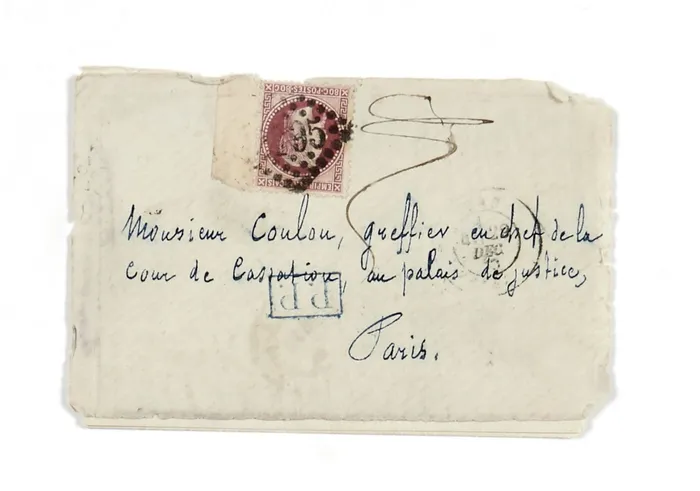 80C·POSTES·80C
EMPIRE FRANÇAIS
35
Monsieur Coulon, greffier en chef de la
Cour de Cassation, au palais de justice,
P.P.
DEC
Paris.